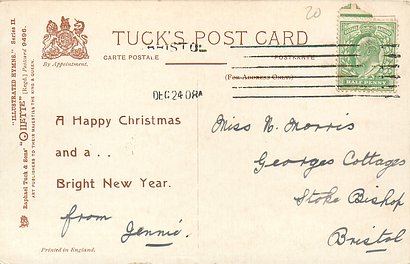 20
TUCK'S POST CARD
By Appointment.
CARTE POSTALE
POSTKARTE
(For Address Only.)
BRISTOL
DEC 24 08
HALF PENNY
"ILLUSTRATED HYMNS." Series II.
Raphael Tuck & Sons' "OILETTE" [Regd.] Postcard 9406.
ART PUBLISHERS TO THEIR MAJESTIES THE KING & QUEEN.
A Happy Christmas
and a . .
Bright New Year.
from
Jennie.
Printed in England.
Miss N. Morris
Georges Cottages
Stoke Bishop
Bristol